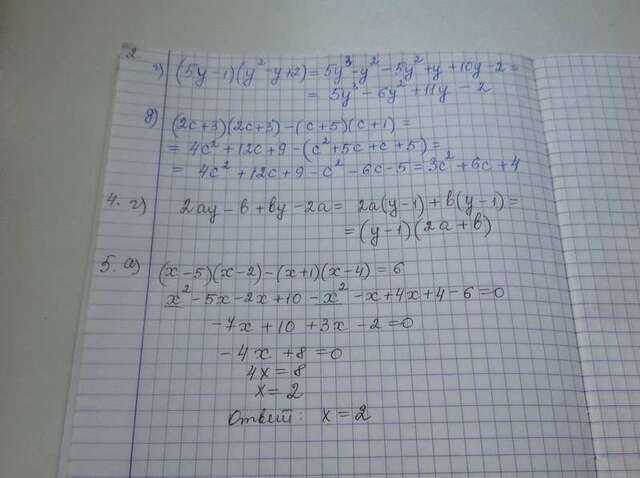 2
г) (5y-1)(y²-y+2) = 5y³-y²-5y²+y+10y-2=
= 5y³-6y²+11y-2
д) (2c+3)(2c+3)-(c+5)(c+1)=
= 4c²+12c+9-(c²+5c+c+5)=
= 4c²+12c+9-c²-6c-5=3c²+6c+4
4. г) 2ay-b+by-2a= 2a(y-1)+b(y-1)=
=(y-1)(2a+b)
5. а) (x-5)(x-2)-(x+1)(x-4)=6
x²-5x-2x+10-x²-x+4x+4-6=0
-7x+10+3x-2=0
-4x+8=0
4x=8
x=2
Ответ: x=2